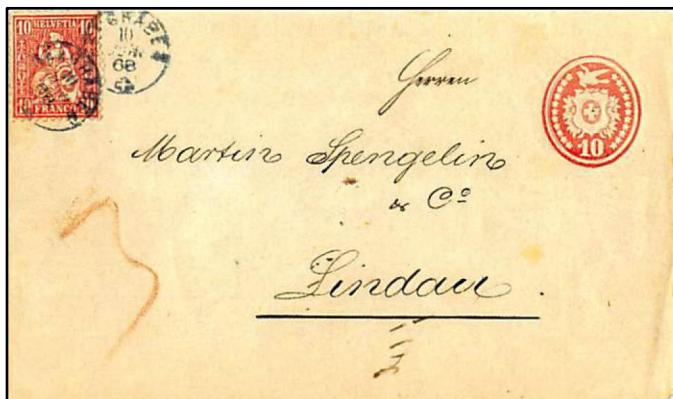 10 HELVETIA 10
10 FRANCO 10
10
68
10
Herren
Martin Spengelin
& Co
Lindau